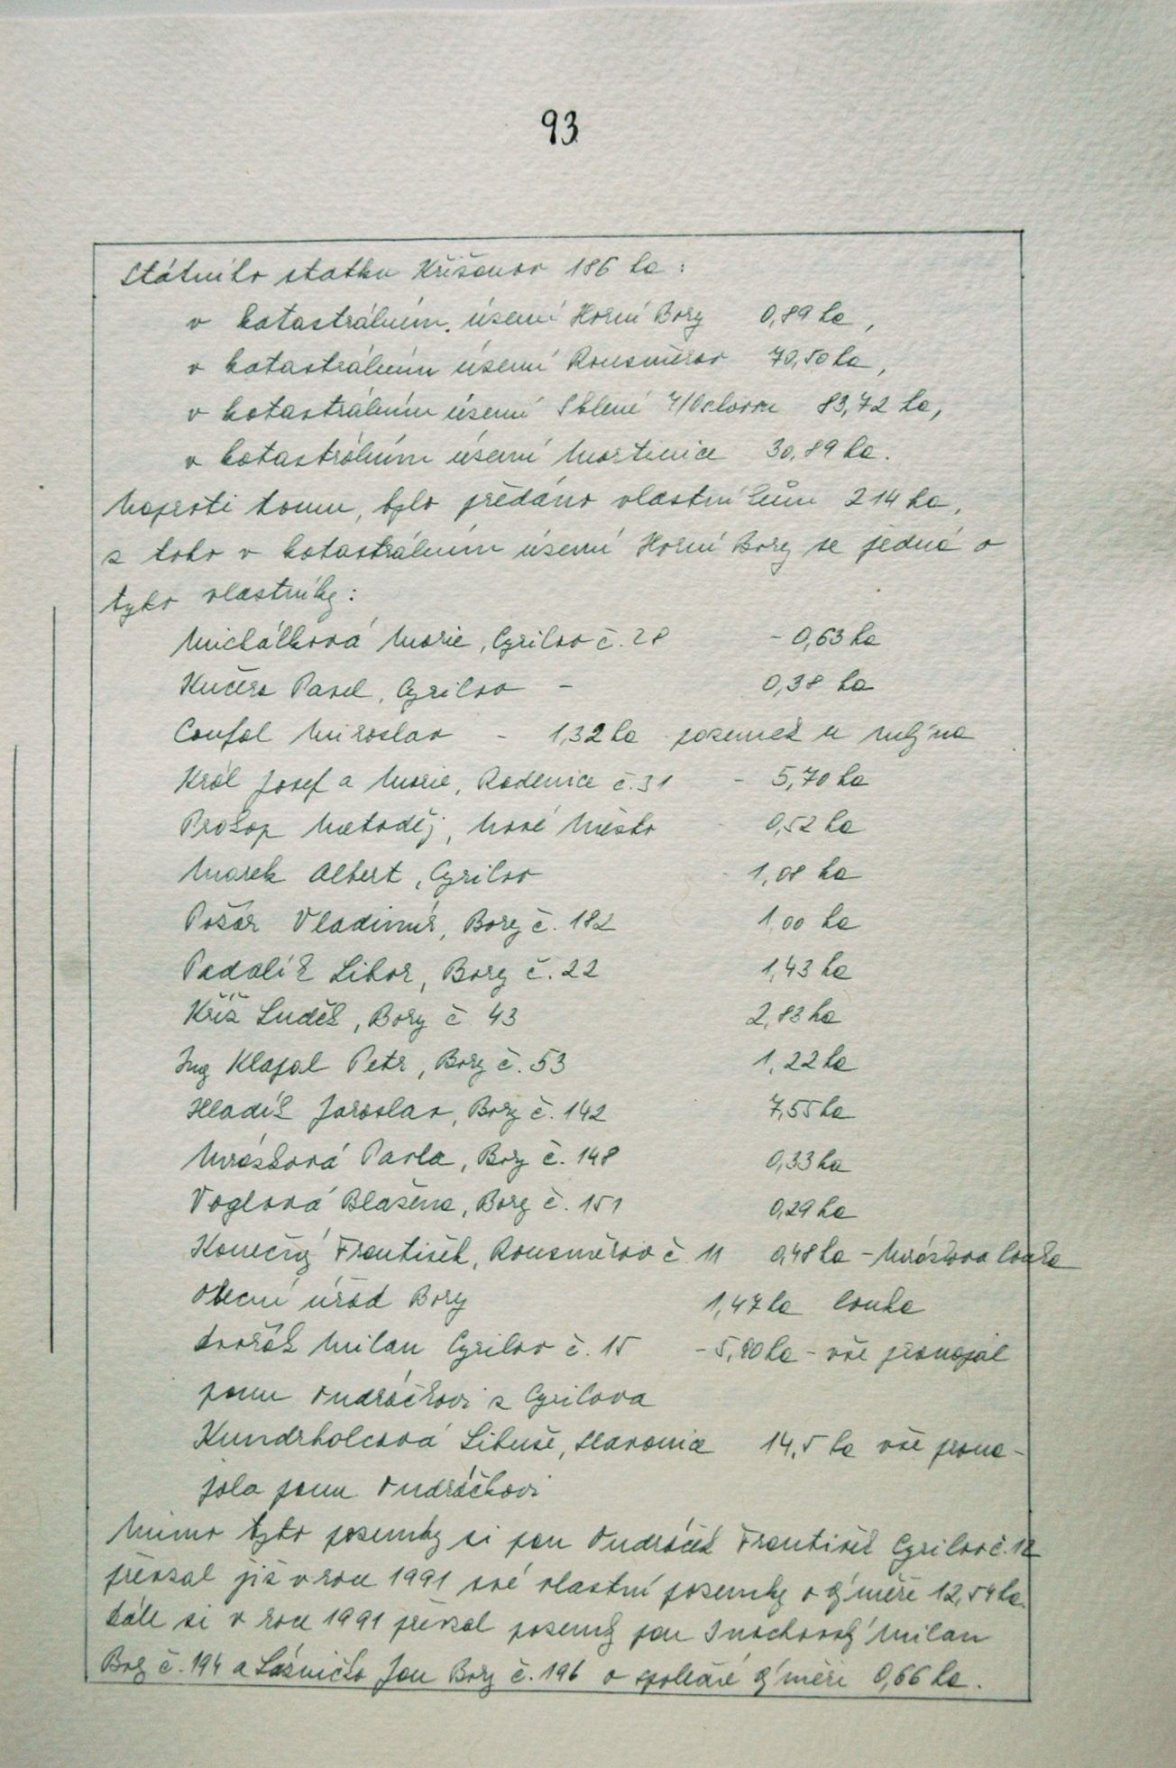 93
Státního statku Křižanov 186 ha:
v katastrálním území Horní Bory 0,89 ha,
v katastrálním území Rousměrov 70,50 ha,
v katastrálním území Sklené n/Oslavou 83,72 ha,
v katastrálním území Martinice 30,89 ha.
Naproti tomu, bylo předáno vlastníkům 214 ha,
z toho v katastrálním území Horní Bory se jedná o
tyto vlastníky:
Michálková Marie, Cyrilov č. 28 - 0,63 ha
Kučera Pavel, Cyrilov - 0,38 ha
Coufal Miroslav - 1,32 ha pozemek u mlýna
Král Josef a Marie, Radenice č. 31 - 5,70 ha
Prokop Metoděj, Nové Město - 0,52 ha
Marek Albert, Cyrilov - 1,08 ha
Požár Vladimír, Bory č. 182 1,00 ha
Padalík Libor, Bory č. 22 1,43 ha
Kříž Luděk, Bory č 43 2,83 ha
Ing Klapal Petr, Bory č. 53 1,22 ha
Hladík Jaroslav, Bory č. 142 7,55 ha
Mrázková Pavla, Bory č. 148 0,33 ha
Voglová Blažena, Bory č. 151 0,29 ha
Konečný František, Rousměrov č 11 0,48 ha - Mrázkova louka
Obecní úřad Bory 1,47 ha louka
Dvořák Milan Cyrilov č. 15 - 5,80 ha - vše pronajal
panu Ondráčkovi z Cyrilova
Kundrholcová Libuše, Slavonice 14,5 ha vše prona-
jala panu Ondráčkovi
Mimo tyto pozemky si pan Ondráček František Cyrilov č. 12
převzal již v roce 1991 své vlastní pozemky o výměře 12,54 ha.
Dále si v roce 1991 převzal pozemky pan Milan
Bory č. 194 a Lázničko Jan Bory č. 196 o společné výměře 0,66 ha.